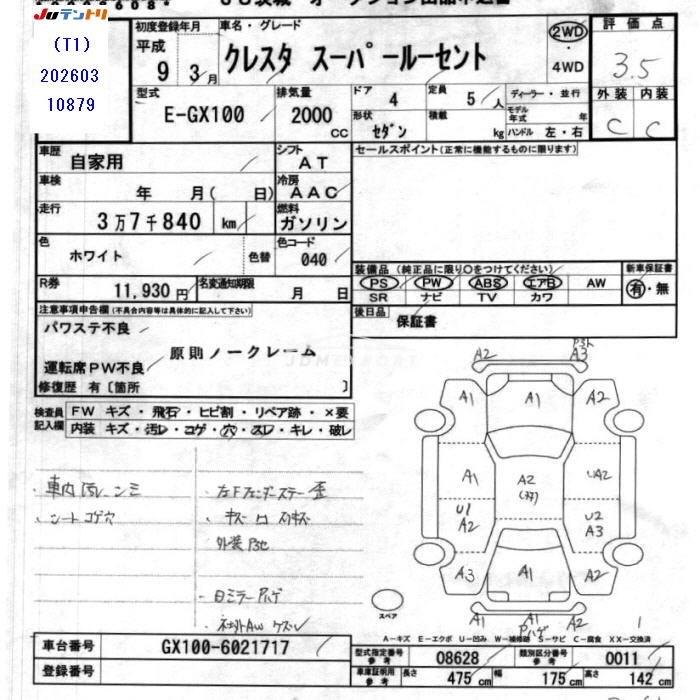 Juテントリ
(T1)
202603
10879
初度登録年月
平成
9 3月
車名・グレード
クレスタ スーパールーセント
2WD
・
4WD
評価点
3.5
外装 内装
C C
型式
E-GX100
排気量
2000
cc
ドア
4
定員
5人
ディーラー・並行
形状
セダン
積載
kg
モデル年式 年
ハンドル 左・右
車歴
自家用
シフト
AT
セールスポイント(正常に機能するものに限ります)
車検
年 月( 日)
冷房
AAC
走行
3万7千840 km
燃料
ガソリン
色
ホワイト
色替
色コード
040
R券
11,930円
名変通知期限
月 日
装備品(純正品に限り○をつけてください)
PS PW ABS エアB AW
SR ナビ TV カワ
新車保証書
有・無
後日品
保証書
注意事項申告欄(不具合内容等は具体的に記入して下さい)
パワステ不良
原則ノークレーム
運転席PW不良
修復歴 有〔箇所 〕
検査員
記入欄
FW キズ・飛石・ヒビ割・リペア跡・×要
内装 キズ・汚レ・コゲ・穴・スレ・キレ・破レ
・車内汚レ シミ
・シートコゲ穴
・左Fフェンダーステー歪
外装
A2 A3
A1 A1 A2
A1 A2 A2
U1 A2
U2 A3
A3 A1 A2
A2 A1 A2
スペア
A-キズ E-エクボ U-凹み W-補修跡 S-サビ C-腐食 XX-交換済
車台番号
GX100-6021717
登録番号
型式指定番号
参考
08628
類別区分番号
参考
0011
車庫証明用
参考
長さ
475cm
幅
175cm
高さ
142cm